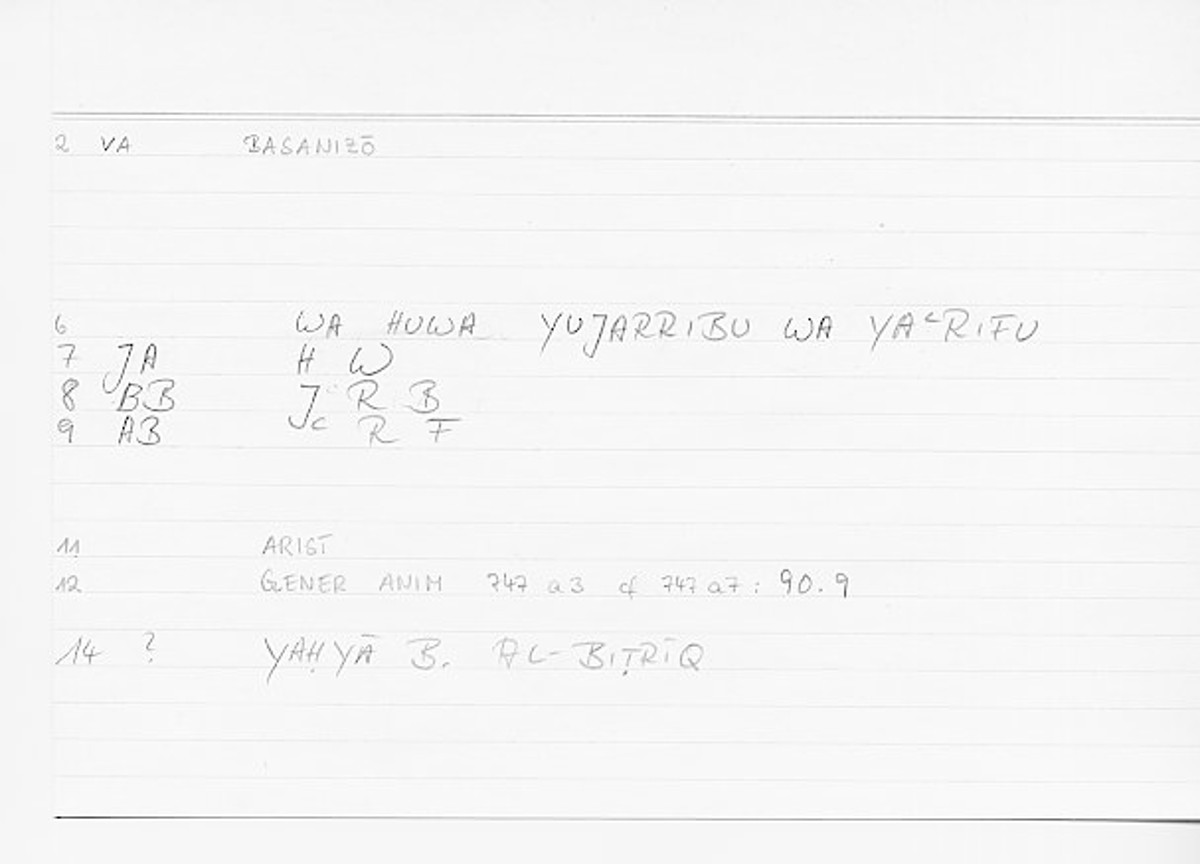 2 VA BASANIZŌ
6 WA HUWA YUJARRIBU WA YAʿRIFU
7 JA H W
8 BB J R B
9 AB ʿ R F
11 ARIST
12 GENER ANIM 747 a 3 cf 747 a 7 : 90.9
14 ? YAḤYĀ B. AL-BIṬRĪQ